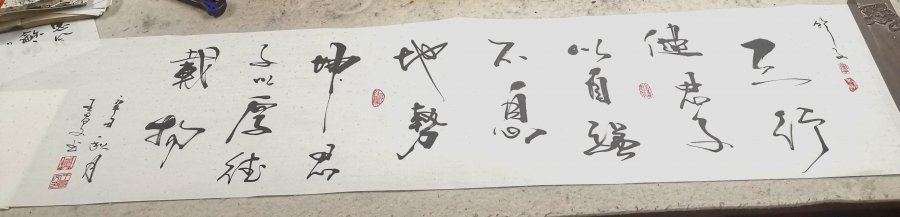 天行
健君子
以自強
不息
地勢
坤君
子以厚德
載物